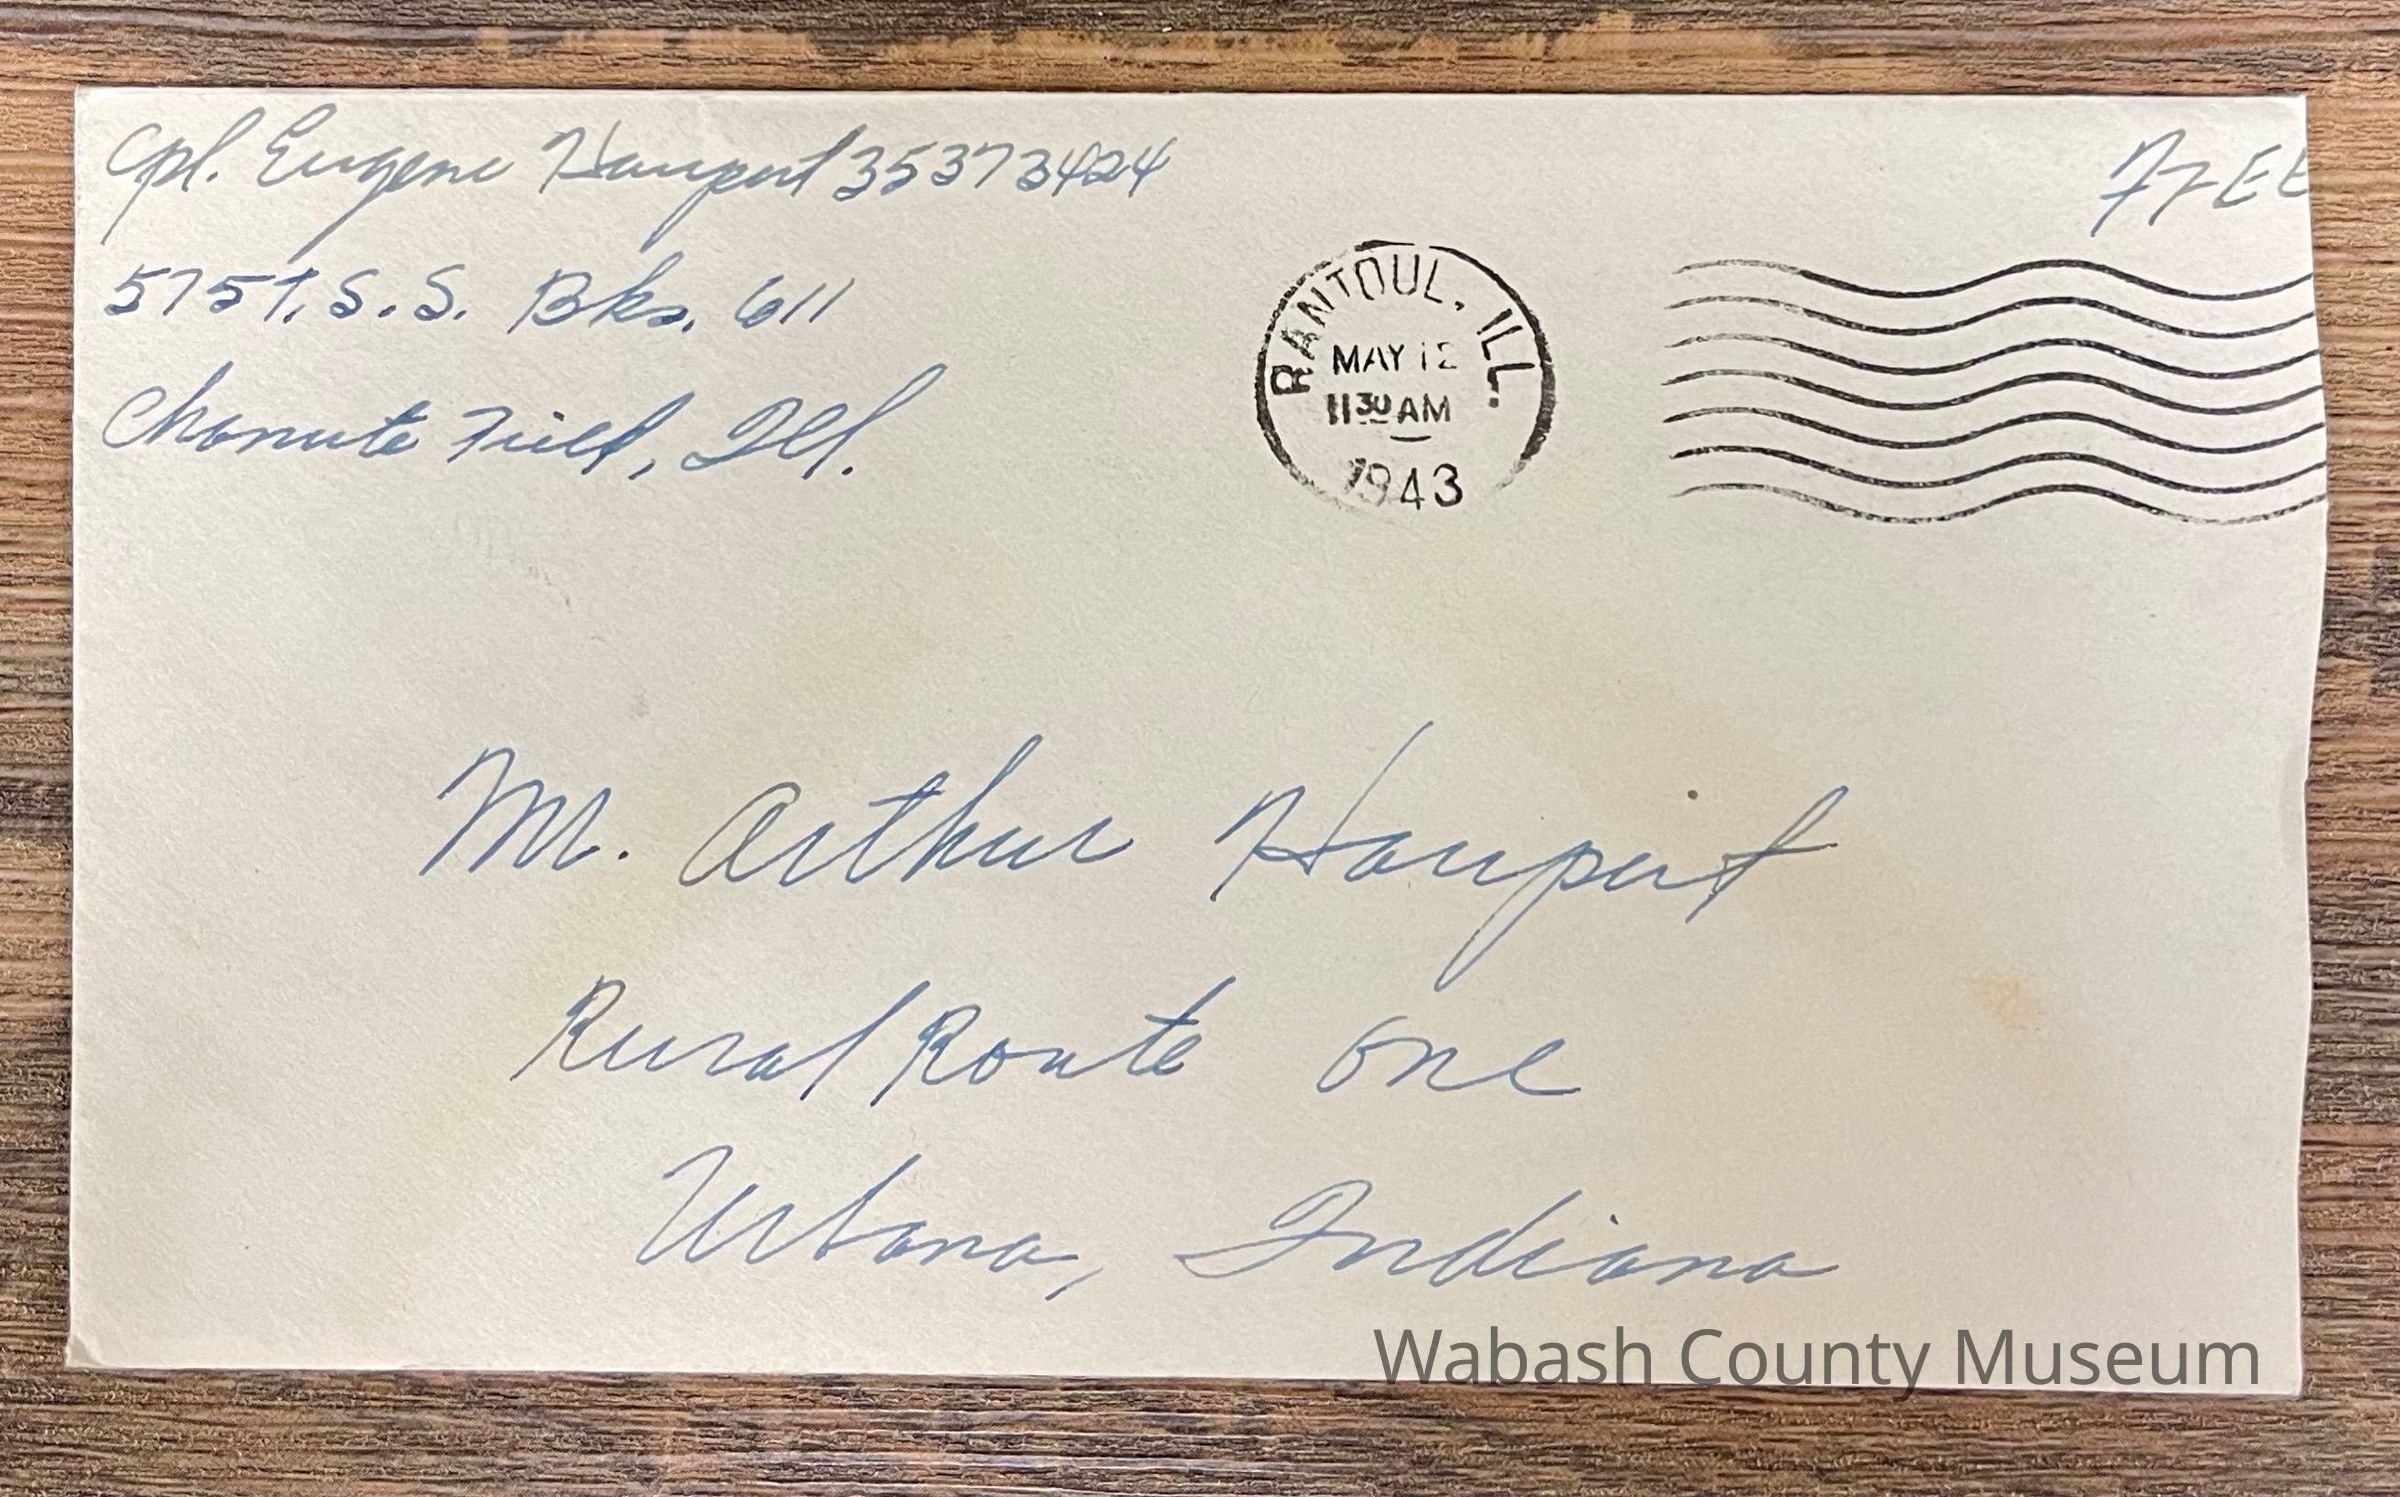 Cpl. Eugene Haupert 35373424
FREE
575 T.S.S. Bks. 611
Chanute Field, Ill.
RANTOUL, ILL.
MAY 12
11 30 AM
1943
Mr. Arthur Haupert
Rural Route One
Urbana, Indiana
Wabash County Museum